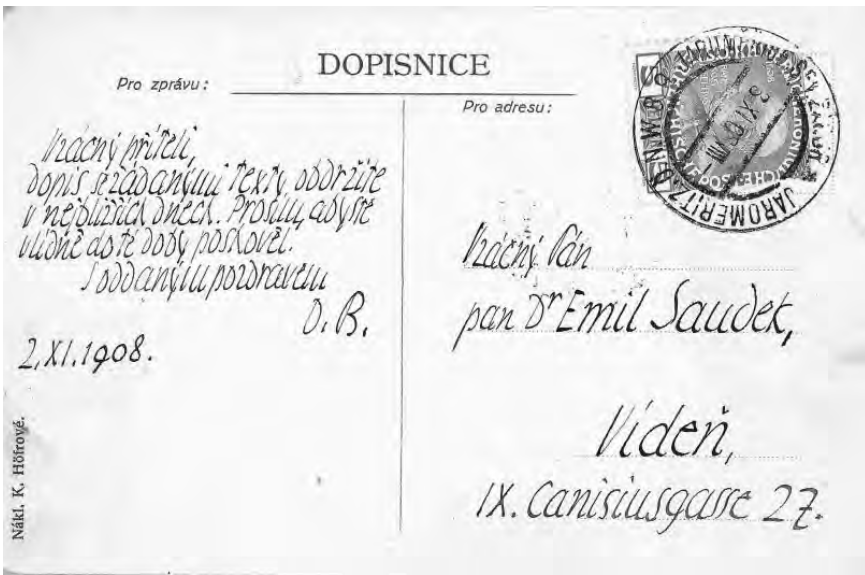 DOPISNICE
Pro zprávu:
Vzácný příteli,
dopis se žádanými texty obdržíte
v nejbližších dnech. Prosím, abyste
vlídně do té doby poshověl.
S oddaným pozdravem
O. B.
2. XI. 1908.
Nákl. K. Höfrové.
Pro adresu:
JAROMERITZ
Vzácný Pán
pan Dr Emil Saudek,
Vídeň,
IX. Canisiusgasse 27.